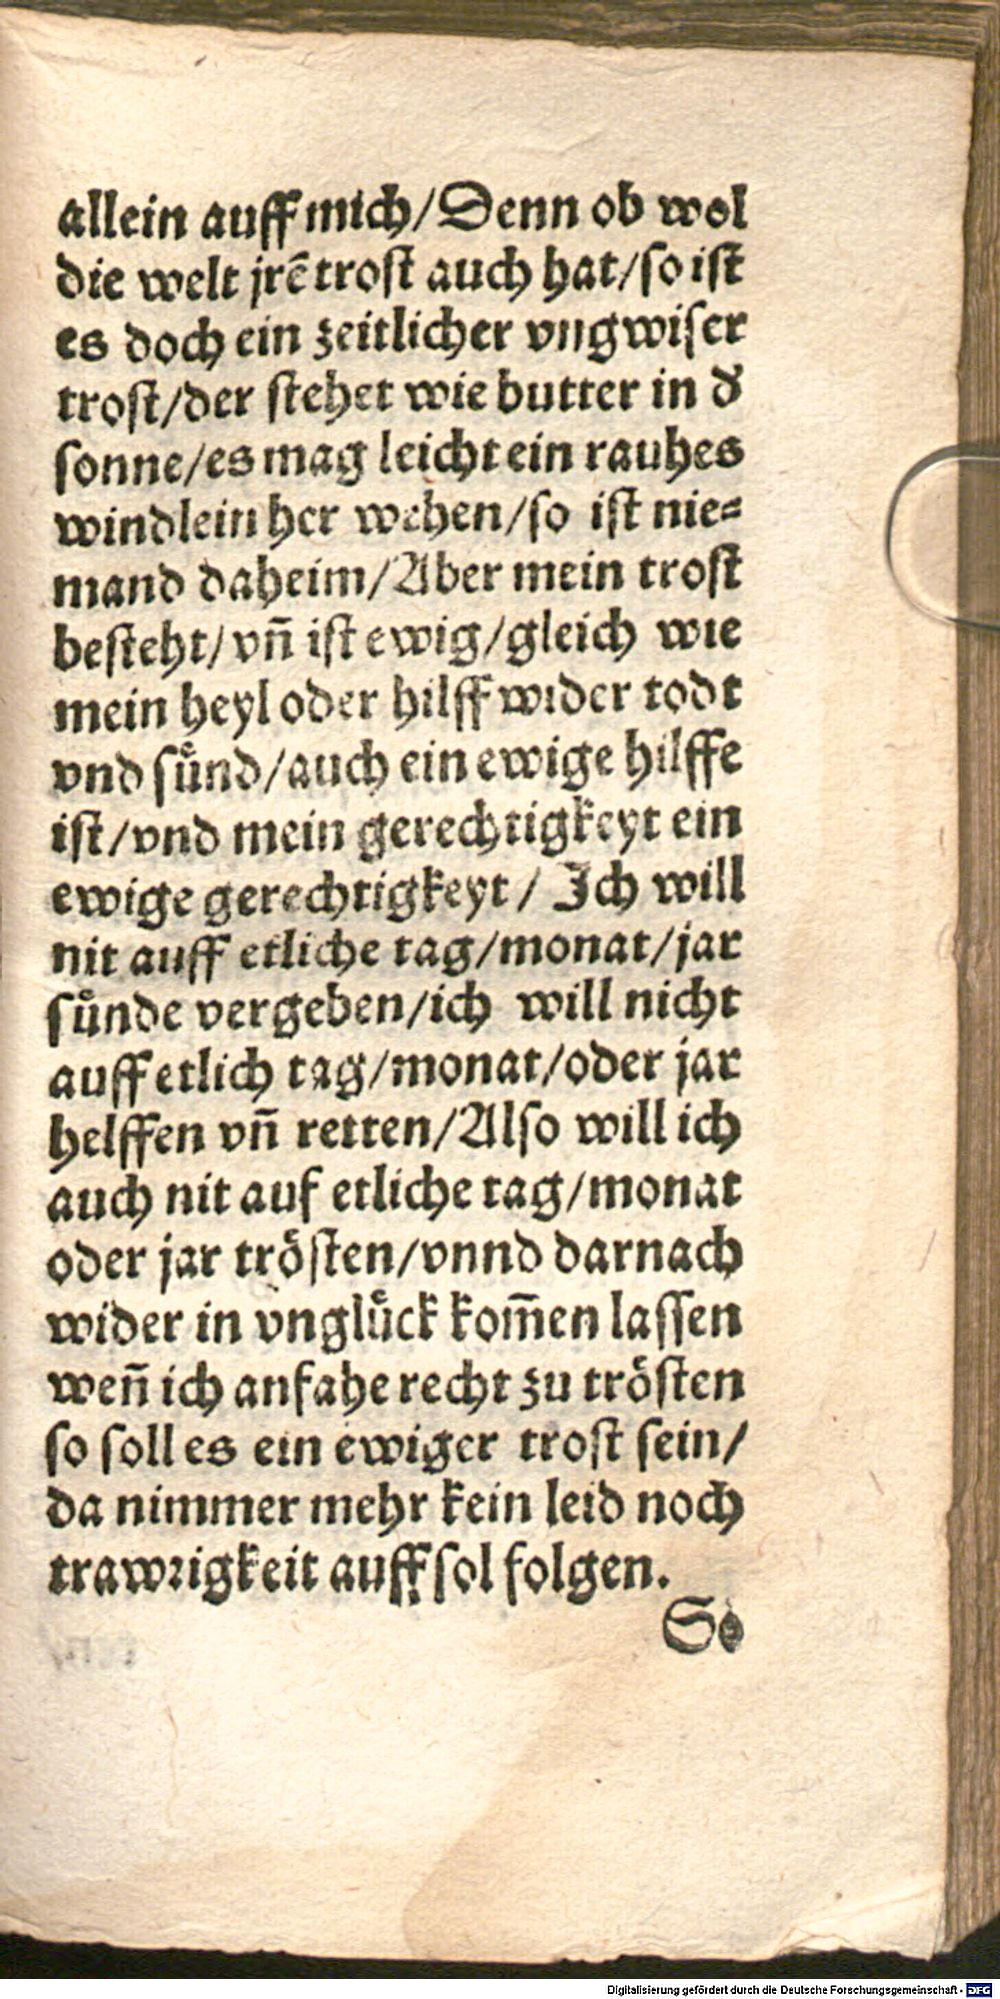 allein auff mich/Denn ob wol
die welt jrē trost auch hat/so ist
es doch ein zeitlicher vngwiser
trost/der stehet wie butter in d̕
sonne/es mag leicht ein rauhes
windlein her wehen/so ist nie=
mand daheim/Aber mein trost
besteht/vn̄ ist ewig/gleich wie
mein heyl oder hilff wider todt
vnd suͤnd/auch ein ewige hilffe
ist/vnd mein gerechtigkeyt ein
ewige gerechtigkeyt/ Ich will
nit auff etliche tag/monat/jar
suͤnde vergeben/ich will nicht
auff etlich tag/monat/oder jar
helffen vn̄ retten/Also will ich
auch nit auf etliche tag/monat
oder jar troͤsten/vnnd darnach
wider in vngluͤck kom̄en lassen
wen̄ ich anfahe recht zu troͤsten
so soll es ein ewiger trost sein/
da nimmer mehr kein leid noch
trawrigkeit auff sol folgen.
So
Digitalisierung gefördert durch die Deutsche Forschungsgemeinschaft - DFG